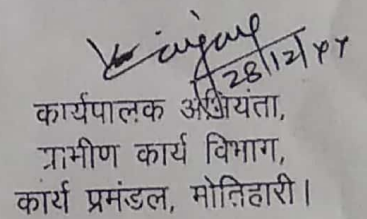 28/12/44
कार्यपालक अभियंता,
ग्रामीण कार्य विभाग,
कार्य प्रमंडल, मोतिहारी।